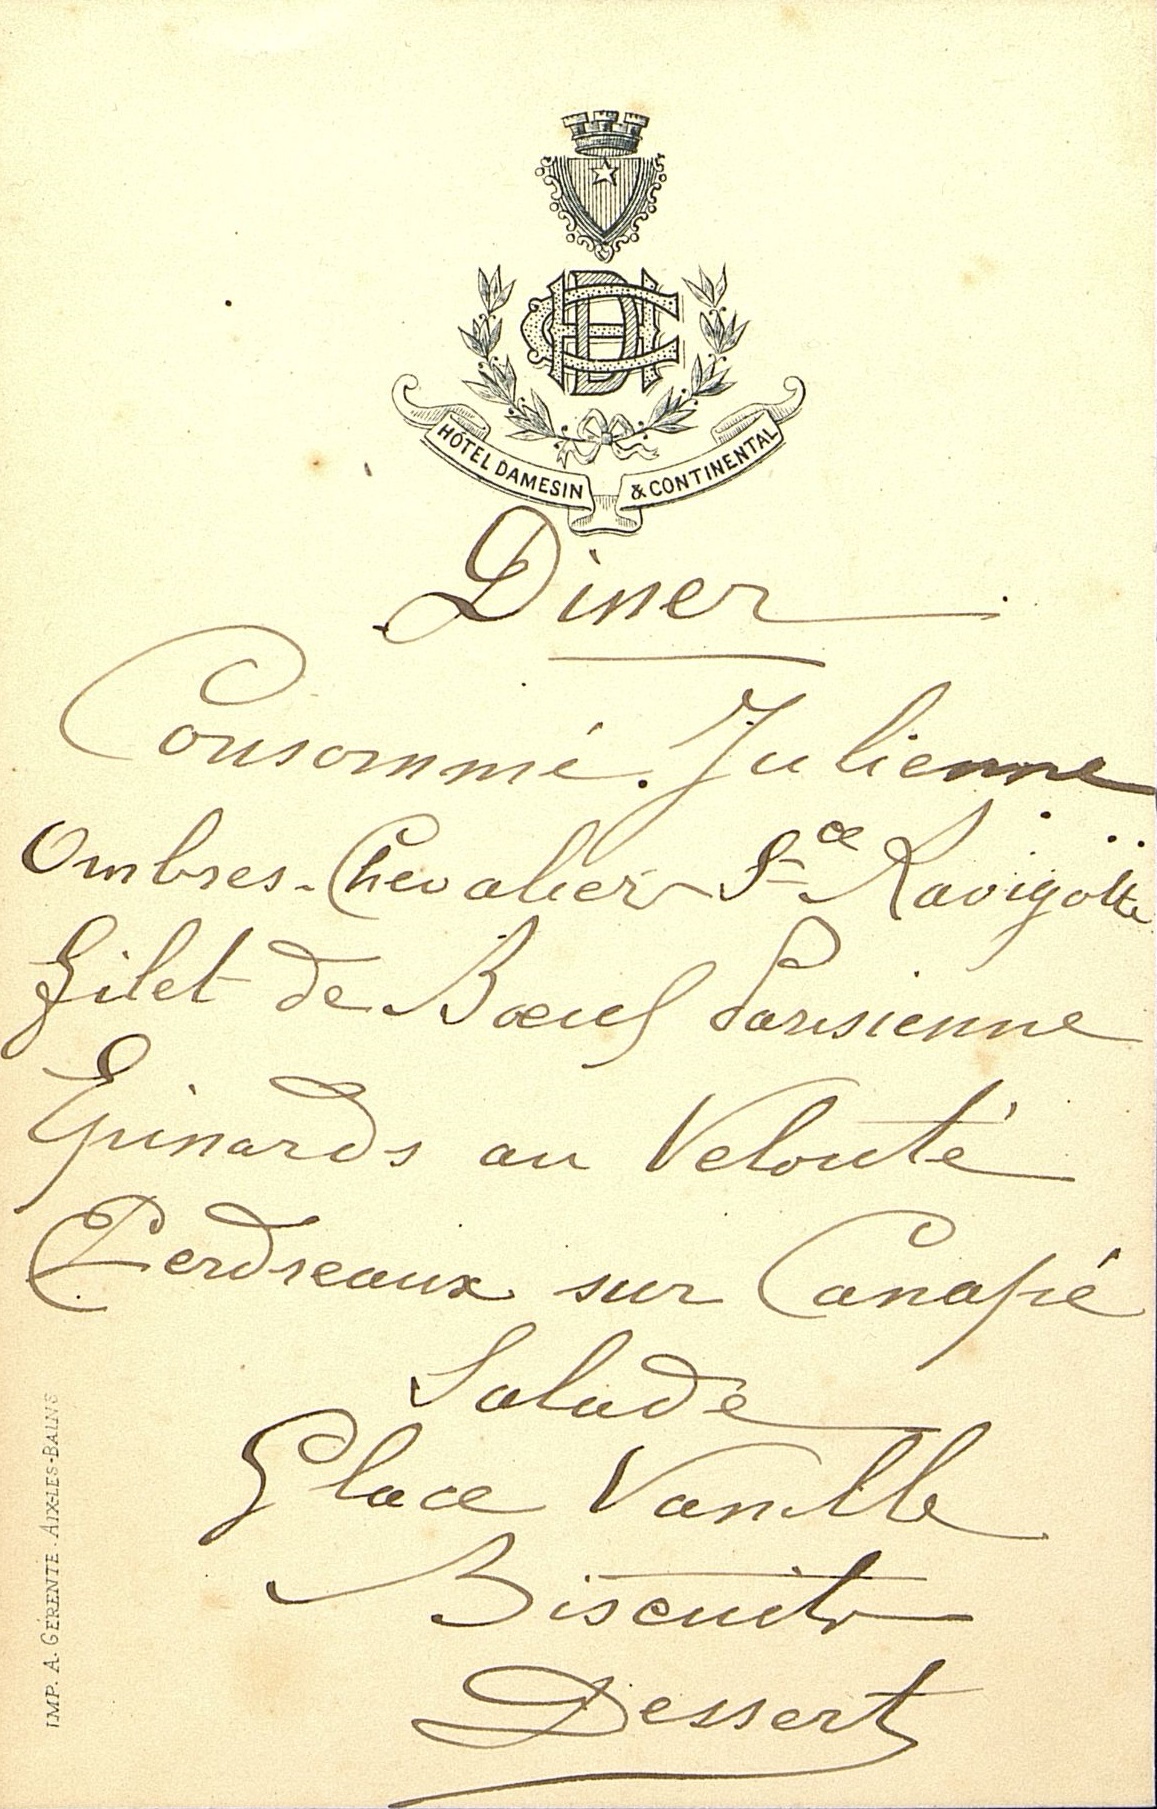 HÔTEL DAMESIN & CONTINENTAL
Diner
Consommé Julienne
Ombres-Chevalier Sce Ravigotte
Filet de Bœuf Parisienne
Epinards au Velouté
Perdreaux sur Canapé
Salade
Glace Vanille
Biscuits
Dessert
IMP. A. GÉRENTE - AIX-LES-BAINS